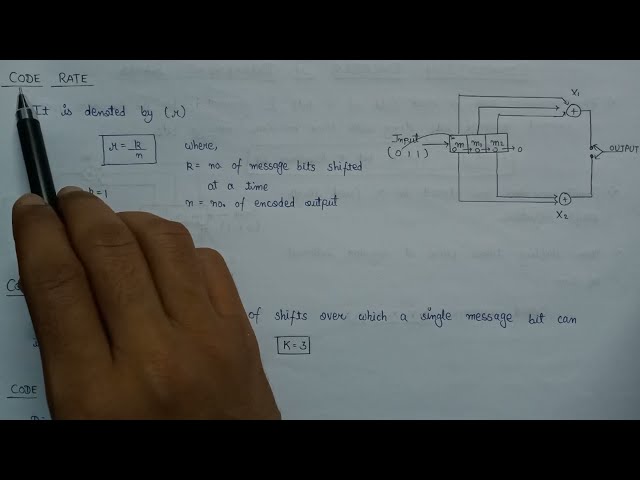 CODE RATE
It is denoted by (r)
r = k/n
where,
k = no. of message bits shifted
at a time
n = no. of encoded output
k=1
of shifts over which a single message bit can
K=3
CODE
Input
(0 1 1)
m m1 m2
0 0 0 0
X1
X2
OUTPUT